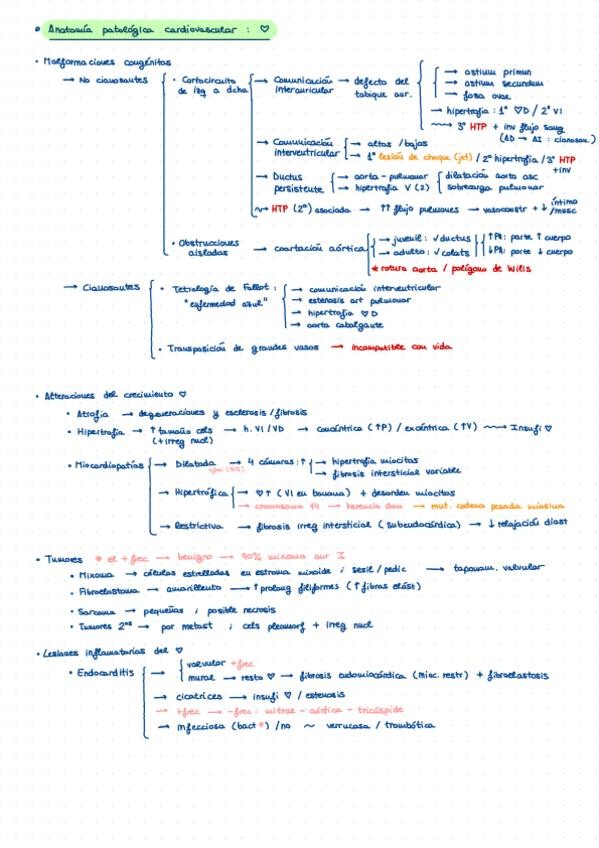 • Anatomía patológica cardiovascular : ♡
• Malformaciones congénitas
→ No cianosantes
• Cortocircuito de izq a dcha
→ Comunicación interauricular → defecto del tabique aur.
→ ostium primun
→ ostium secundum
→ fosa ovae
→ hipertrofia : 1º ♡D / 2º VI
⟿ 3º HTP + inv flujo sang
(AD → AI : cianosan.)
→ Comunicación interventricular
→ altas / bajas
→ 1º lesión de choque (jet) / 2º hipertrofia / 3º HTP + inv
→ Ductus persistente
→ aorta - pulmonar
→ hipertrofia V (2)
dilatación aorta asc
sobrecarga pulmonar
⟿ HTP (2ª) asociada → ↑↑ flujo pulmones → vasoconstr + ↓ íntima / musc
• Obstrucciones aisladas → coartación aórtica
→ juvenil : ✓ductus
→ adulta : ✓colats
↑PA: parte ↑ cuerpo
↓PA: parte ↓ cuerpo
* rotura aorta / polígono de Wilis
→ Cianosantes
• Tetralogía de Fallot : "enfermedad azul"
→ comunicación interventricular
→ estenosis art pulmonar
→ hipertrofia ♡ D
→ aorta cabalgante
• Transposición de grandes vasos → incompatible con vida
• Alteraciones del crecimiento ♡
• Atrofia → degeneraciones y esclerosis / fibrosis
• Hipertrofia → ↑ tamaño cels → h. VI / VD → concéntrica (↑P) / excéntrica (↑V) ⟿ Insufi ♡
(+ irreg nucl)
• Miocardiopatías
→ Dilatada → 4 cámaras : ↑
→ hipertrofia miocitos
→ fibrosis intersticial variable
→ Hipertrófica
→ ♡↑ (VI en banana) + desorden miocitos
→ cromosoma 14 → herencia dom → mut. cadena pesada miosina
→ Restrictiva → fibrosis irreg intersticial (subendocárdica) → ↓ relajación diast
• Tumores * el + frec → benigno → 90% mixoma aur I
• Mixoma → células estrelladas en estroma mixoide ; sesil / pedic → taponam. valvular
• Fibroelastoma → amarillento → ↑ prolong filiformes (↑ fibras elást)
• Sarcoma → pequeñas ; posible necrosis
• Tumores 2ºˢ → por metast ; cels pleomorf + irreg nucl
• Lesiones inflamatorias del ♡
• Endocarditis
→ valvular + frec
mural → resto ♡ → fibrosis endomiocárdica (mioc. restr) + fibroelastosis
→ cicatrices → insufi ♡ / estenosis
→ + frec → - frec : mitral - aórtica - tricúspide
→ infecciosa (bact *) / no ~ verrucosa / trombótica